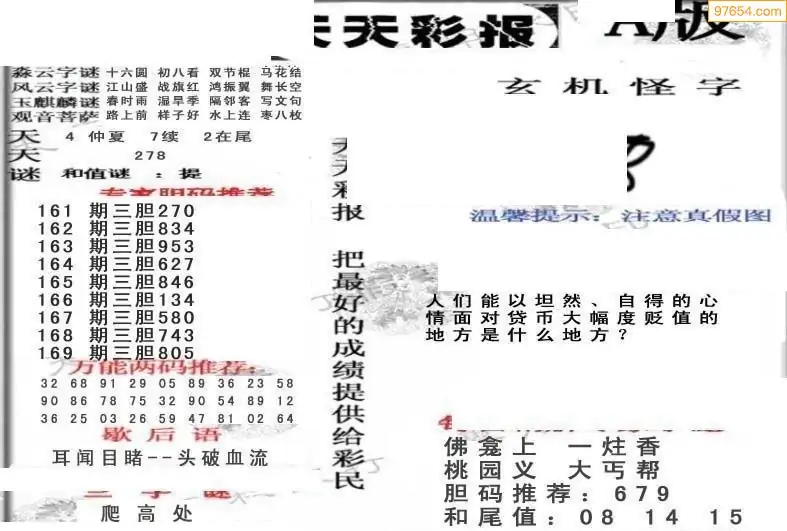 天天彩报
A版
97654.com
森云字谜 十六圆 初八看 双节棍 马花结
风云字谜 江山盛 战旗红 鸿振翼 舞长空
玉麒麟谜 春时雨 湿旱季 隔邻客 写文句
观音菩萨 路上前 样子好 水上连 枣八枚
天 4 仲夏 7续 2在尾
天 278
谜 和值谜 : 提
专家胆码推荐
161 期三胆270
162 期三胆834
163 期三胆953
164 期三胆627
165 期三胆846
166 期三胆134
167 期三胆580
168 期三胆743
169 期三胆805
万能两码推荐:
32 68 91 29 05 89 36 23 58
90 86 78 75 32 90 54 89 12
36 25 03 26 59 47 81 02 64
歇后语
耳闻目睹--头破血流
三字谜
爬高处
天天彩报 把最好的成绩提供给彩民
玄机怪字
温馨提示: 注意真假图
人们能以坦然、自得的心
情面对贷币大幅度贬值的
地方是什么地方？
佛龛上 一炷香
桃园义 大丐帮
胆码推荐: 679
和尾值: 08 14 15